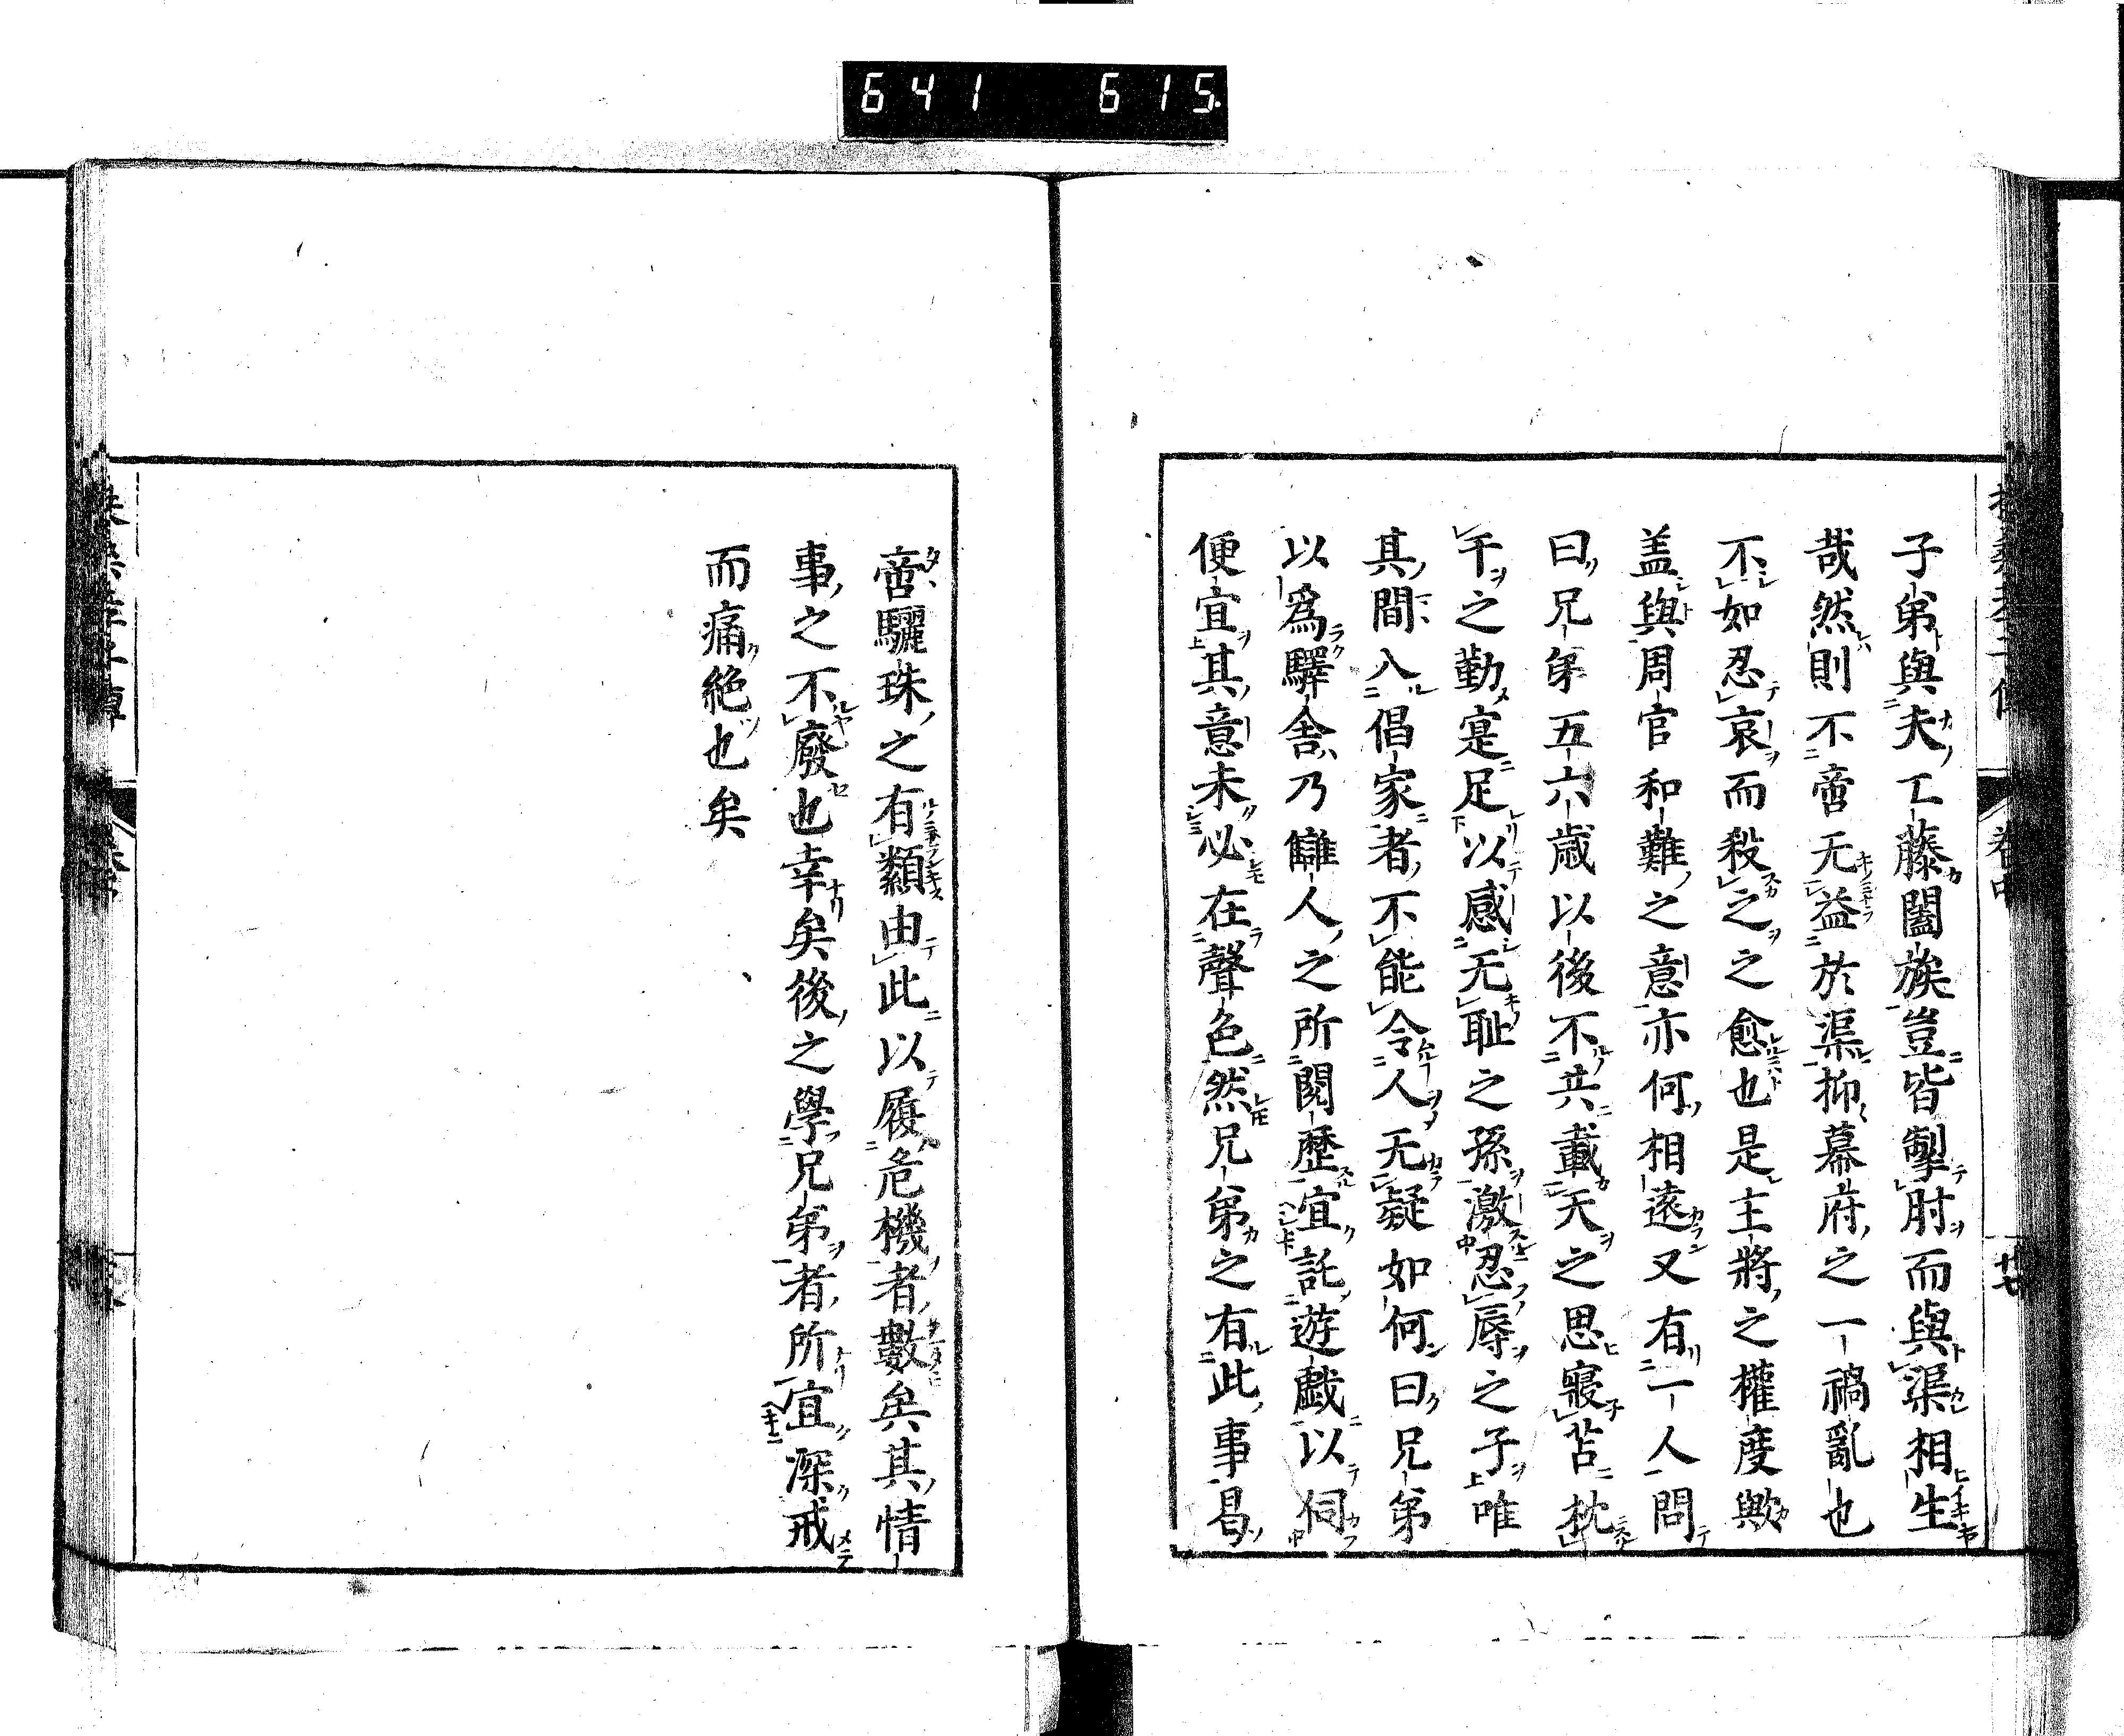 641 615
子弟與夫工藤闔族豈皆掣肘而與渠相生
哉然則不啻无益於渠抑幕府之一禍亂也
不如忍哀而殺之之愈也是主將之權度歟
盖與周官和難之意亦何相遠又有一人問
曰兄弟五六歳以後不共戴天之思寢苫枕
干之勤寔足以感无恥之孫激忍辱之子唯
其間入倡家者不能令人无疑如何曰兄弟
以爲驛舎乃讎人之所閲歷宜託遊戯以伺
便宜其意未必在聲色然兄弟之有此事曷
啻驪珠之有纇由此以履危機者數矣其情
事之不廢也幸矣後之學兄弟者所宜深戒
而痛絶也矣
卷中
廿七